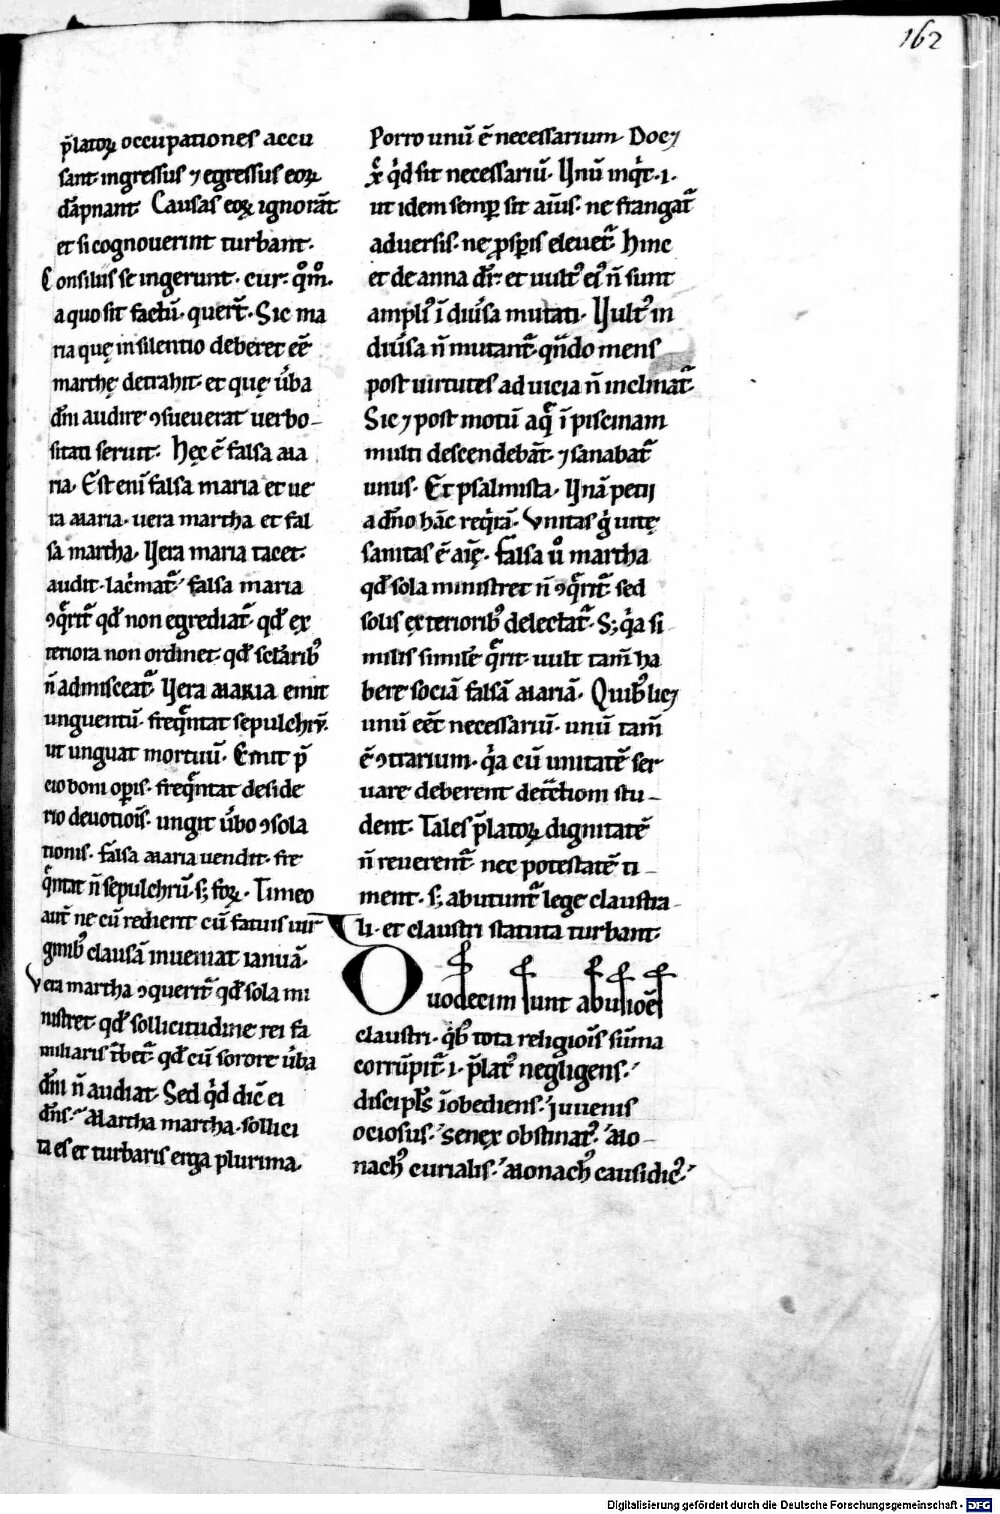 162
p̄latoꝝ occupationes accu
sant· ingressus ⁊ egressus eoꝝ
dāpnant· Causas eoꝝ ignorāt
et si cognouerint turbant·
Consiliis se ingerunt· cur· qͦmͦ·
a quo sit factū· querūt· Sic ma
ria quę in silentio deberet eē
marthę detrahit· et quę ůba
dn̄i audire ꝯsueuerat uerbo-
sitati seruit· Hęc ē falsa ma
ria· Est eni falsa maria et ue
ra maria· uera martha et fal
sa martha· Vera maria tacet·
audit· lac̄mat᷑· falsa maria
ꝯq̄rit᷑ qd̄ non egrediat᷑· qd̄ ex
teriora non ordinet· qd̄ sclārib᷒
n̄ admisceat᷑· Vera maria emit
unguentū· freq̄ntat sepulchrū·
ut unguat mortuū· Emit p̄
cio boni opis· freq̄ntat deside
rio deuotiōis· ungit ůbo ꝯsola
tionis· falsa maria uendit· fre
q̄ntat n̄ sepulchrū· s; foꝝ· Timeo
aut̄ ne cū redierit cū fatuis uir
ginib᷒ clausā inueniat ianuā·
Vera martha ꝯquerit᷑ qd̄ sola mi
nistret· qd̄ sollicitudine rei fa
miliaris t̄bet᷑· qd̄ cū sorore ůba
dn̄i n̄ audiat· Sed qͥd dic̄ ei
dn̄s· Martha martha· sollici
ta es et turbaris erga plurima·
Porro unū ē necessarium· Docꝫ
xp̄c qͥd sit necessariū· Unū inqͥt· ı·
ut idem semꝑ sit aīus· ne frangat᷑
aduersis· ne ꝓsꝑis eleuet᷑· Hinc
et de anna dr̄· et uult᷒ ei᷒ n̄ sunt
ampli᷒ ī diůsa mutati· Vult᷒ in
diůsa n̄ mutant᷑· qn̄do mens
post uirtutes ad uicia n̄ inclinat᷑·
Sic ⁊ post motū aq̄ ī piscinam
multi descendebāt· ⁊ sanabat᷑
unus· Et psalmista· Unā petii
a dn̄o hāc reqͥrā· Vnitas gͥ uitę
sanitas ē aīę· falsa uͦ martha
qd̄ sola ministret n̄ ꝯq̄rit᷑· sed
solis exteriorib᷒ delectat᷑· S; qͥa si
milis similē q̄rit· uult tam̄ ha
bere sociā falsā mariā· Quib᷒licꝫ
unū eēt necessariū· unū tam̄
ē ꝯtrarium· qͥa cū unitatē ser
uare deberent detc̄tiom stu-
dent· Tales p̄latoꝝ dignitatē
n̄ reuerent᷑· nec potestatē ti-
ment· s; abutunt᷑ lege claustra-
li· et claustri statuta turbant·
Duodecim sunt abusiōes
claustri· qͥb᷒ tota religiōis sūma
corrūpit᷑· ı· p̄lat᷒ negligens·
discipl᷒s īobediens· iuuenis
ociosus· senex obstinat᷒· Mo-
nach᷒ curialis· Monach᷒ causidic᷒·
Digitalisierung gefördert durch die Deutsche Forschungsgemeinschaft - DFG